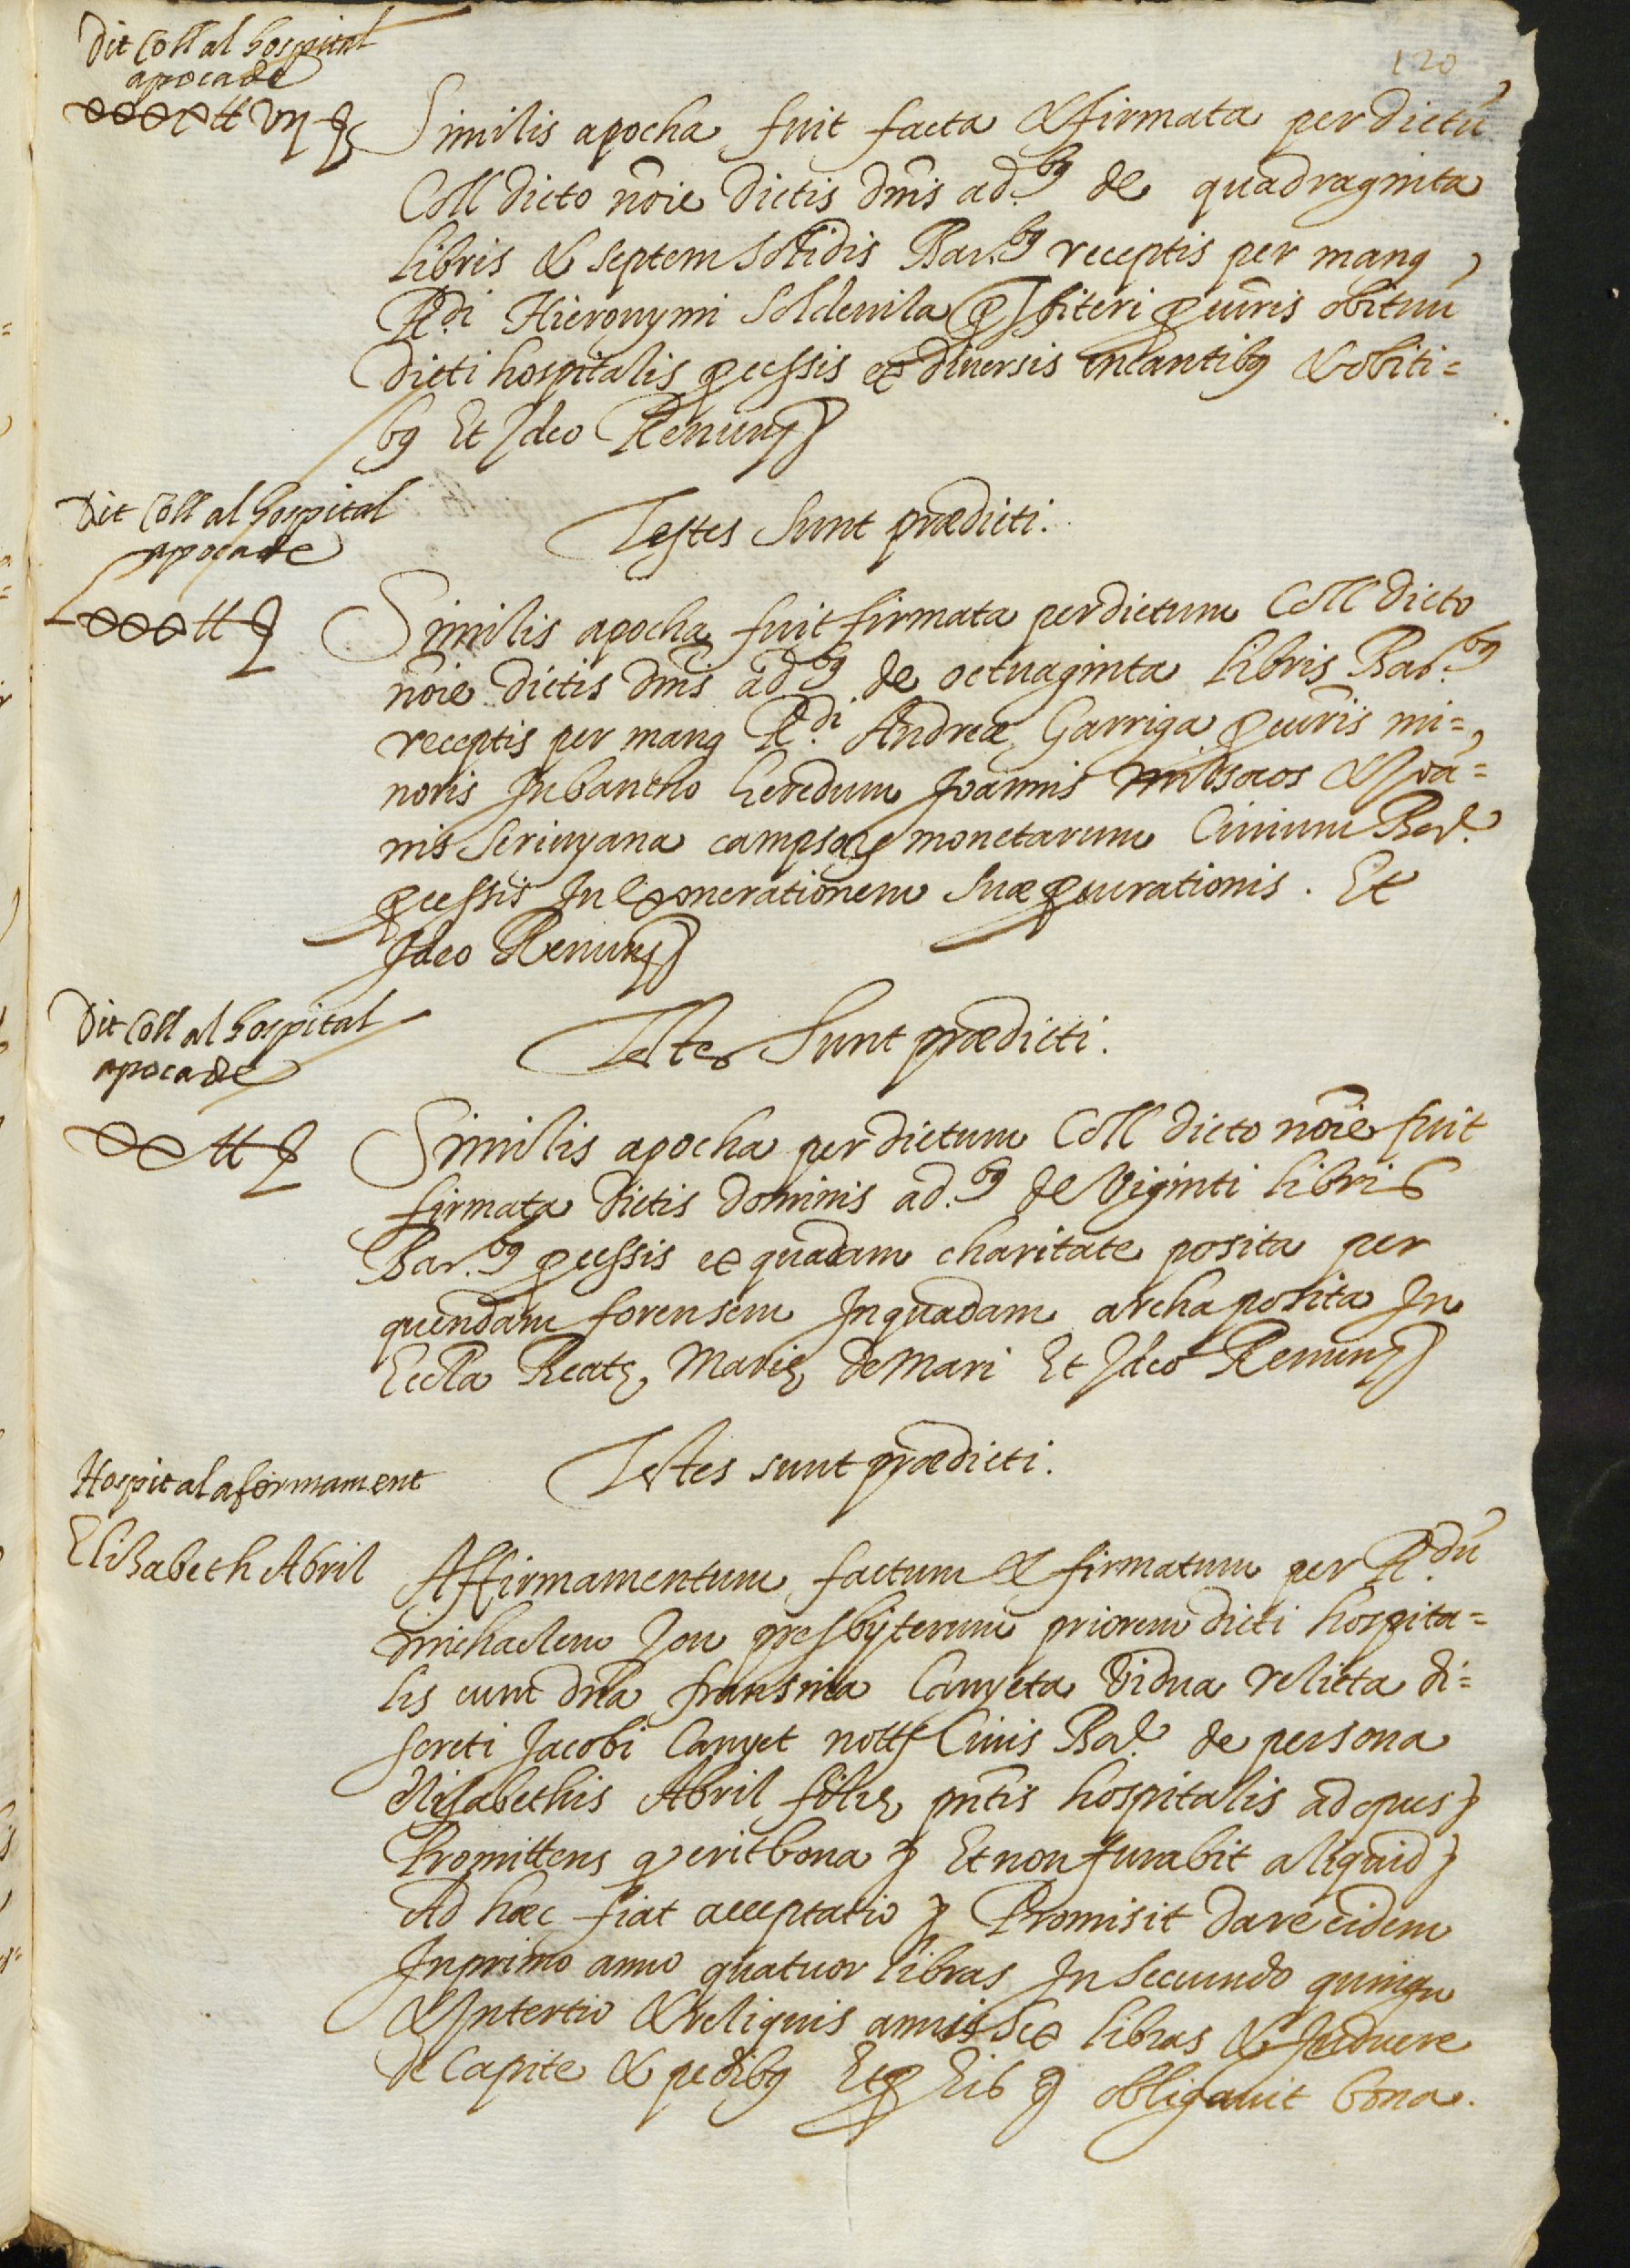 120
Dit Coll al hospital
apoca de
xxxx ₶ vij ß
Similis apocha fuit facta & firmata per dictū
Coll dicto nōie dictis dn̄is ad.bꝰ de quadraginta
libris & septem solidis Bar.bꝰ receptis per manꝰ
R.di Hieronymi Soldevila p̄sbiteri ꝓcuīris obituū
dicti hospitalis ꝓcessis ex diversis encantibꝰ & obiti=
bꝰ Et Ideo Renunȝ
Testes sunt prædicti.
Dit Coll al hospital
apoca de
Lxxx ₶ ß
Similis apocha fuit firmata per dictum Coll dicto
nōie dictis dn̄is ad.bꝰ de octuaginta libris Bar.bꝰ
receptis per manꝰ R.di Andreæ Garriga ꝓcuīris mi=
noris In bancho heredum Joannis Milsocos & Joā=
nis Serinyana campsorꝫ monetarum Civium Bar.
ꝓcessis In Exonerationem suæ ꝓcurationis. Et
Ideo Renunȝ
Testes sunt prædicti.
Dit Coll al hospital
apoca de
xx ₶ ß
Similis apocha per dictum Coll dicto nōie fuit
firmata dictis dominis ad.bꝰ de viginti libris
Bar.bꝰ ꝓcessis ex quadam charitate posita per
quendam forensem In quadam archa posita In
Eccl̄a Beatę Marię de Mari Et Ideo Renunȝ
Testes sunt prædicti.
Hospital afermament
Elisabeth Abril
Affirmamentum factum & firmatum per R.dū
Michaelem Jou presbÿterum priorem dicti hospita=
lis cum dn̄a fransina Canyeta vidua relicta di=
screti Jacobi Canyet nottȝ Civis Bar. de persona
Elisabethis Abril filię pn̄tis hospitalis ad opus ꝫ
Promittens ꝙ erit bona ꝫ Et non furabit aliquid ꝫ
Ad hæc fiat acceptatio ꝫ Promisit dare eidem
In primo anno quatuor libras In secundo quinqꝫ
& In tertio & reliquis annis sex libras & Induere
de capite & pedibꝰ Et ꝓ his ꝫ obligavit bona.